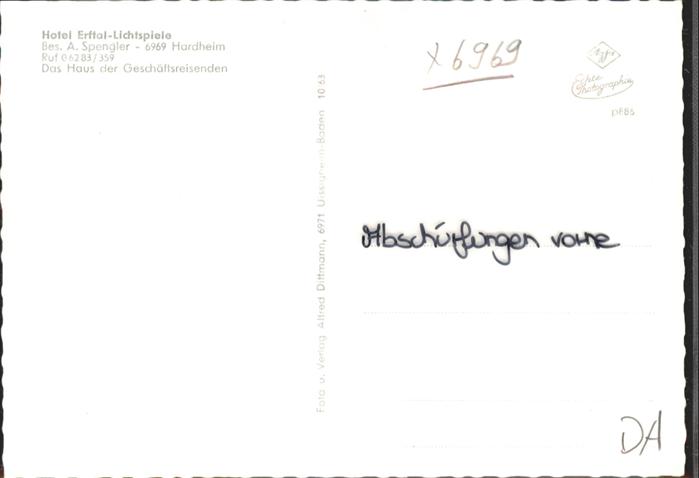 Hotel Erftal-Lichtspiele
Bes. A. Spengler - 6969 Hardheim
Ruf 06283/359
Das Haus der Geschäftsreisenden
x 6969
Agfa
Echte
Photographie
Foto u. Verlag Alfred Dittmann, 6971 Uissigheim-Baden 10 63
Abschürfungen vorne
DA